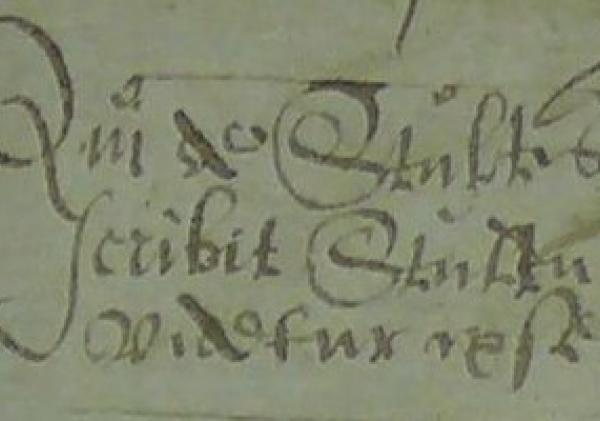 Qui de Stultis
scribit Stultu
videtur ipse